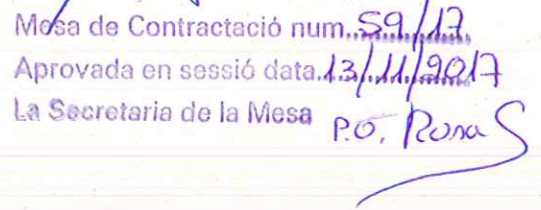 Mesa de Contractació num. 59/17
Aprovada en sessió data. 13/11/2017
La Secretaria de la Mesa P.O. Rosa S